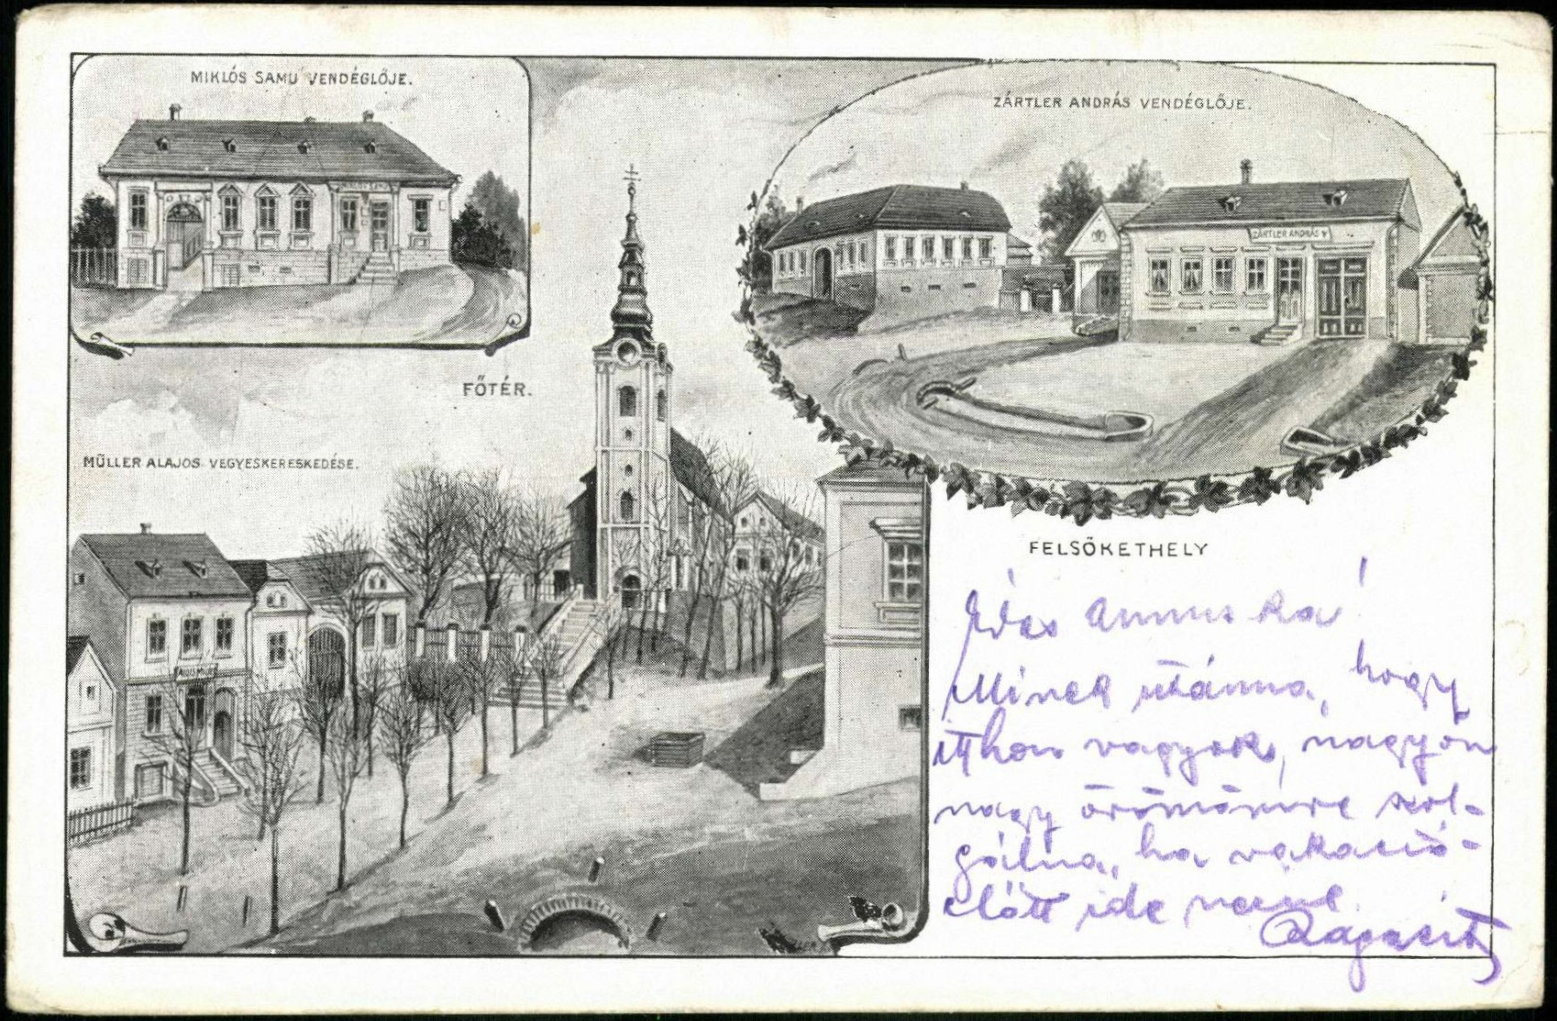 MIKLÓS SAMU VENDÉGLŐJE.
ZÁRTLER ANDRÁS VENDÉGLŐJE.
ZÁRTLER ANDRÁS V
FŐTÉR.
MÜLLER ALAJOS VEGYESKERESKEDÉSE.
FELSŐKETHELY
Édes Annuska!
Minek utánna, hogy
itthon vagyok, nagyon
nagy örömömre szol-
gálna, ha vakació-
előtt ide